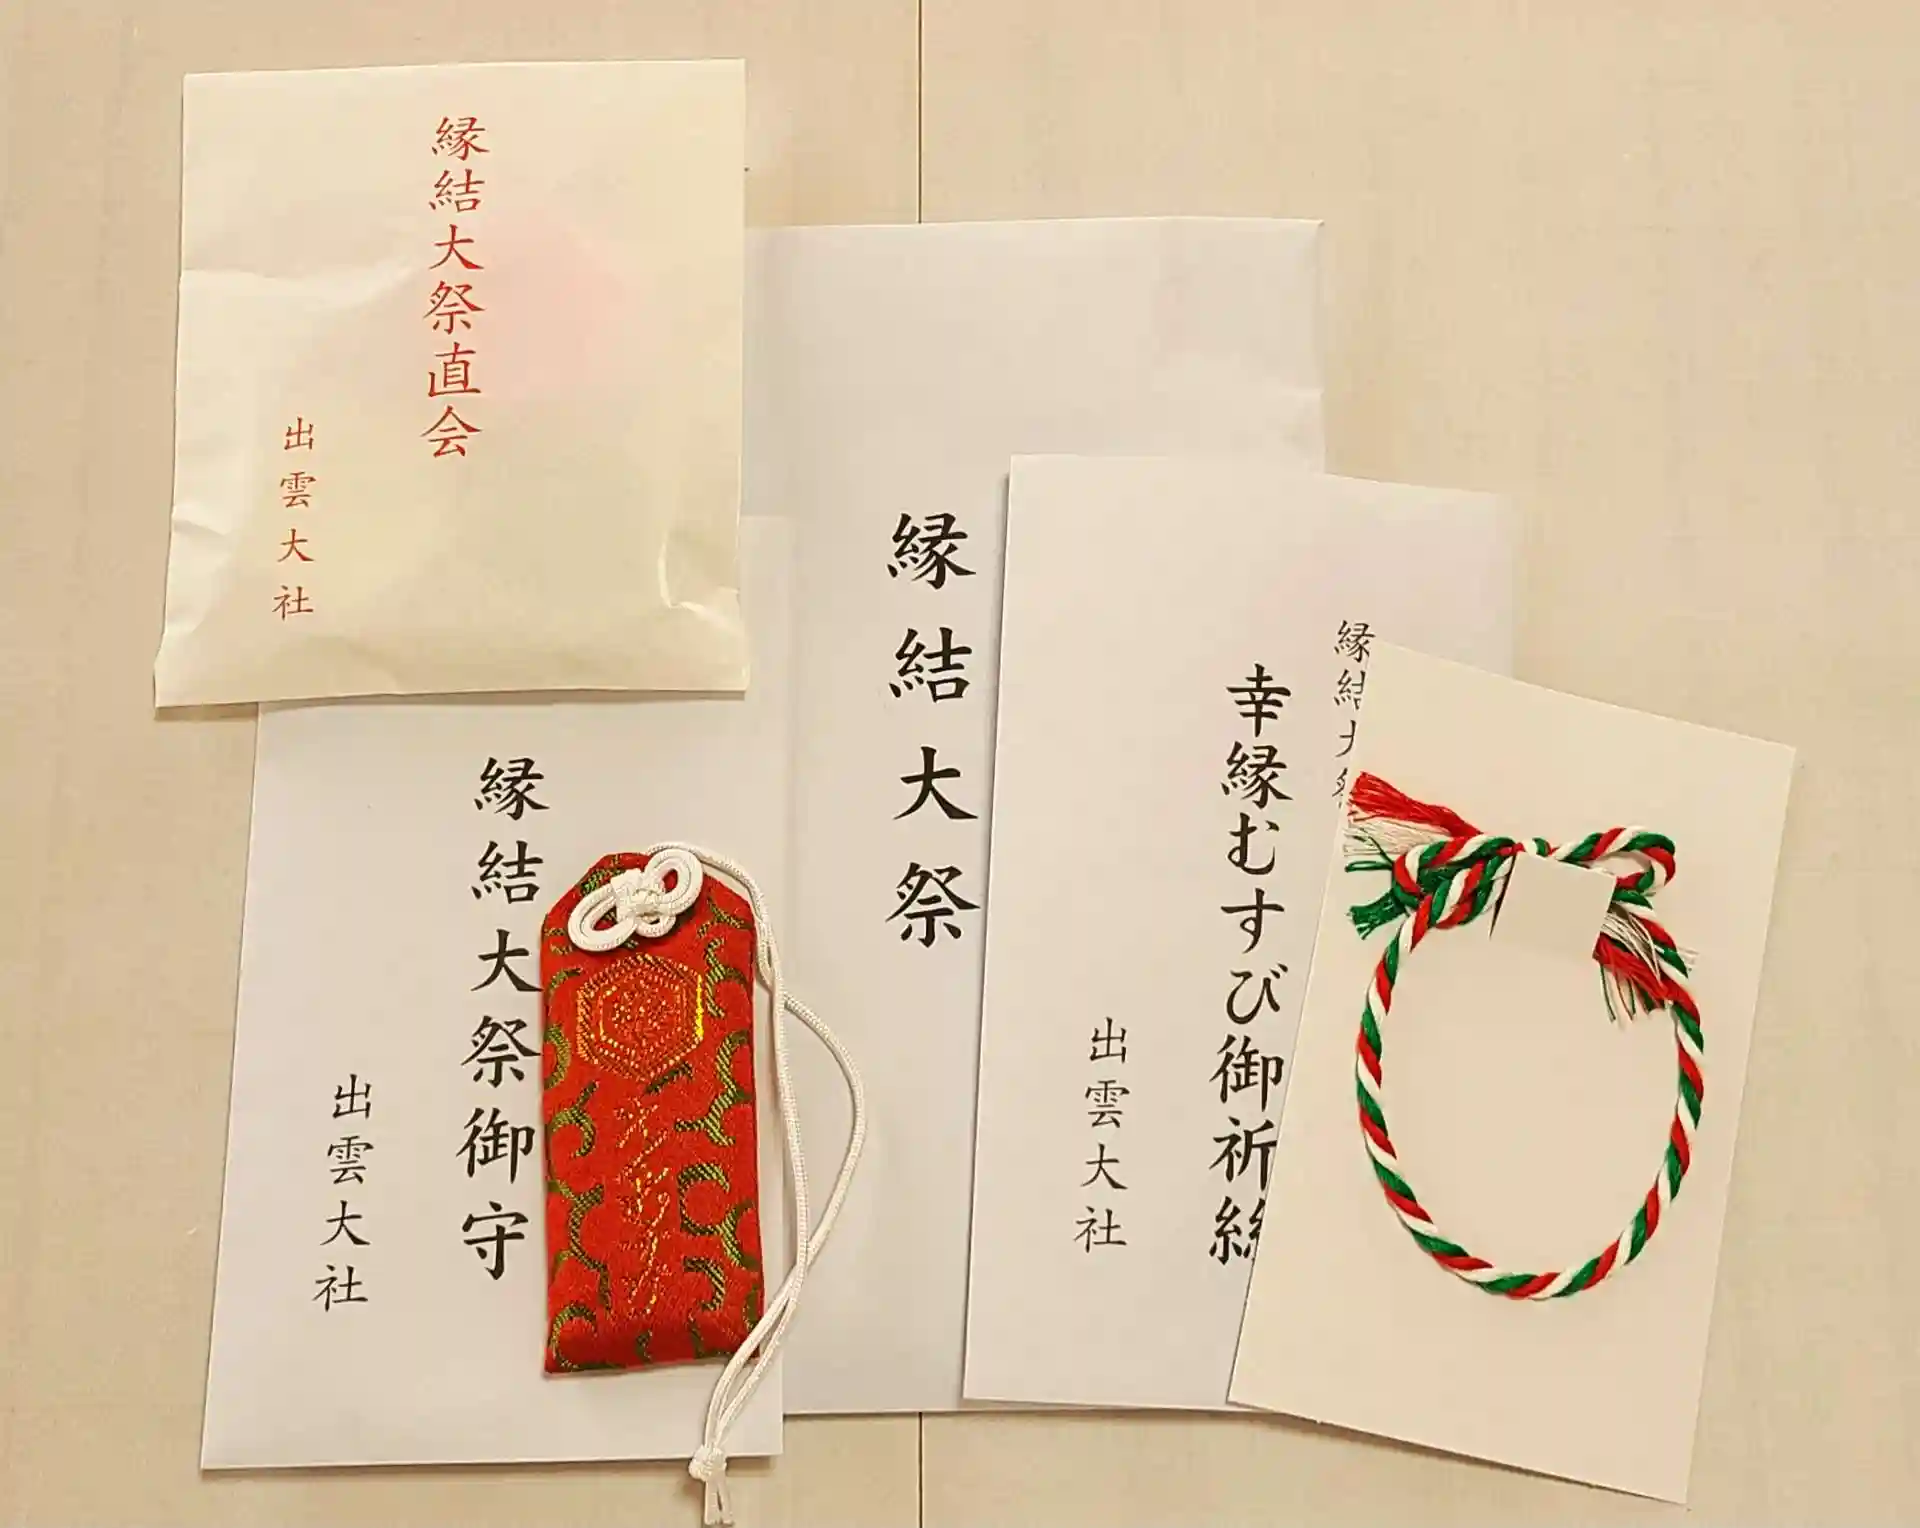 縁結大祭直会
出雲大社
縁結大祭
縁結大祭
幸縁むすび御祈絲
出雲大社
縁結大祭御守
出雲大社